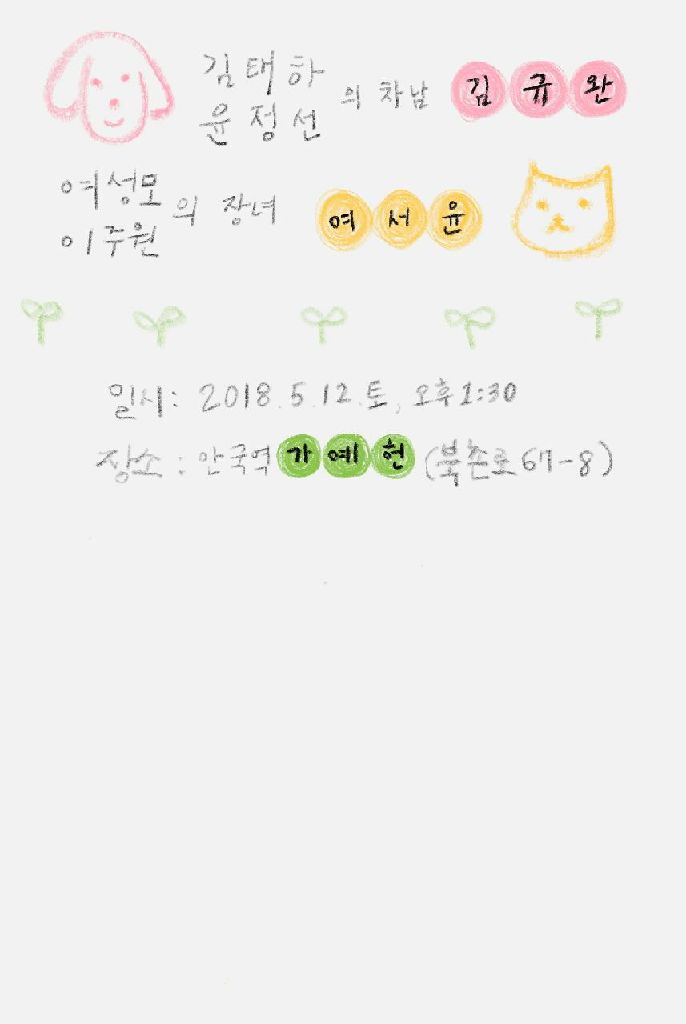 김태하
윤정선 의 차남 김규완
여성모
이주원 의 장녀 여서윤
일시: 2018.5.12.토, 오후1:30
장소: 안국역 가예헌 (북촌로 67-8)